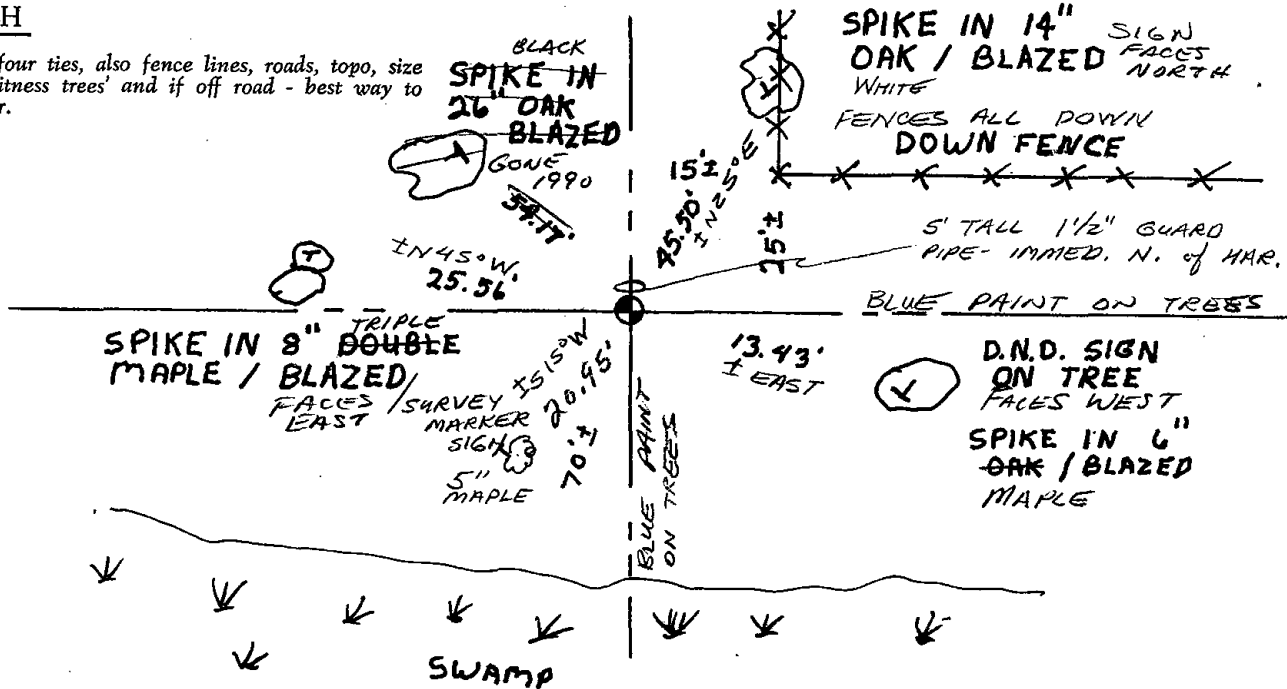 H
four ties, also fence lines, roads, topo, size
itness trees' and if off road - best way to
r.
BLACK
SPIKE IN
26" OAK
BLAZED
GONE
1990
54.17'
SPIKE IN 14"
OAK / BLAZED
WHITE
SIGN
FACES
NORTH
FENCES ALL DOWN
DOWN FENCE
15'±
45.50'
±N25°E
25'±
5' TALL 1 1/2" GUARD
PIPE- IMMED. N. of HAR.
±N45°W.
25.56'
BLUE PAINT ON TREES
TRIPLE
SPIKE IN 8" DOUBLE
MAPLE / BLAZED/
FACES
EAST
/SURVEY
MARKER
SIGN
5"
MAPLE
±S15°W
20.95'
70'±
BLUE PAINT
ON TREES
13.93'
± EAST
D.N.D. SIGN
ON TREE
FACES WEST
SPIKE IN 6"
OAK / BLAZED
MAPLE
SWAMP